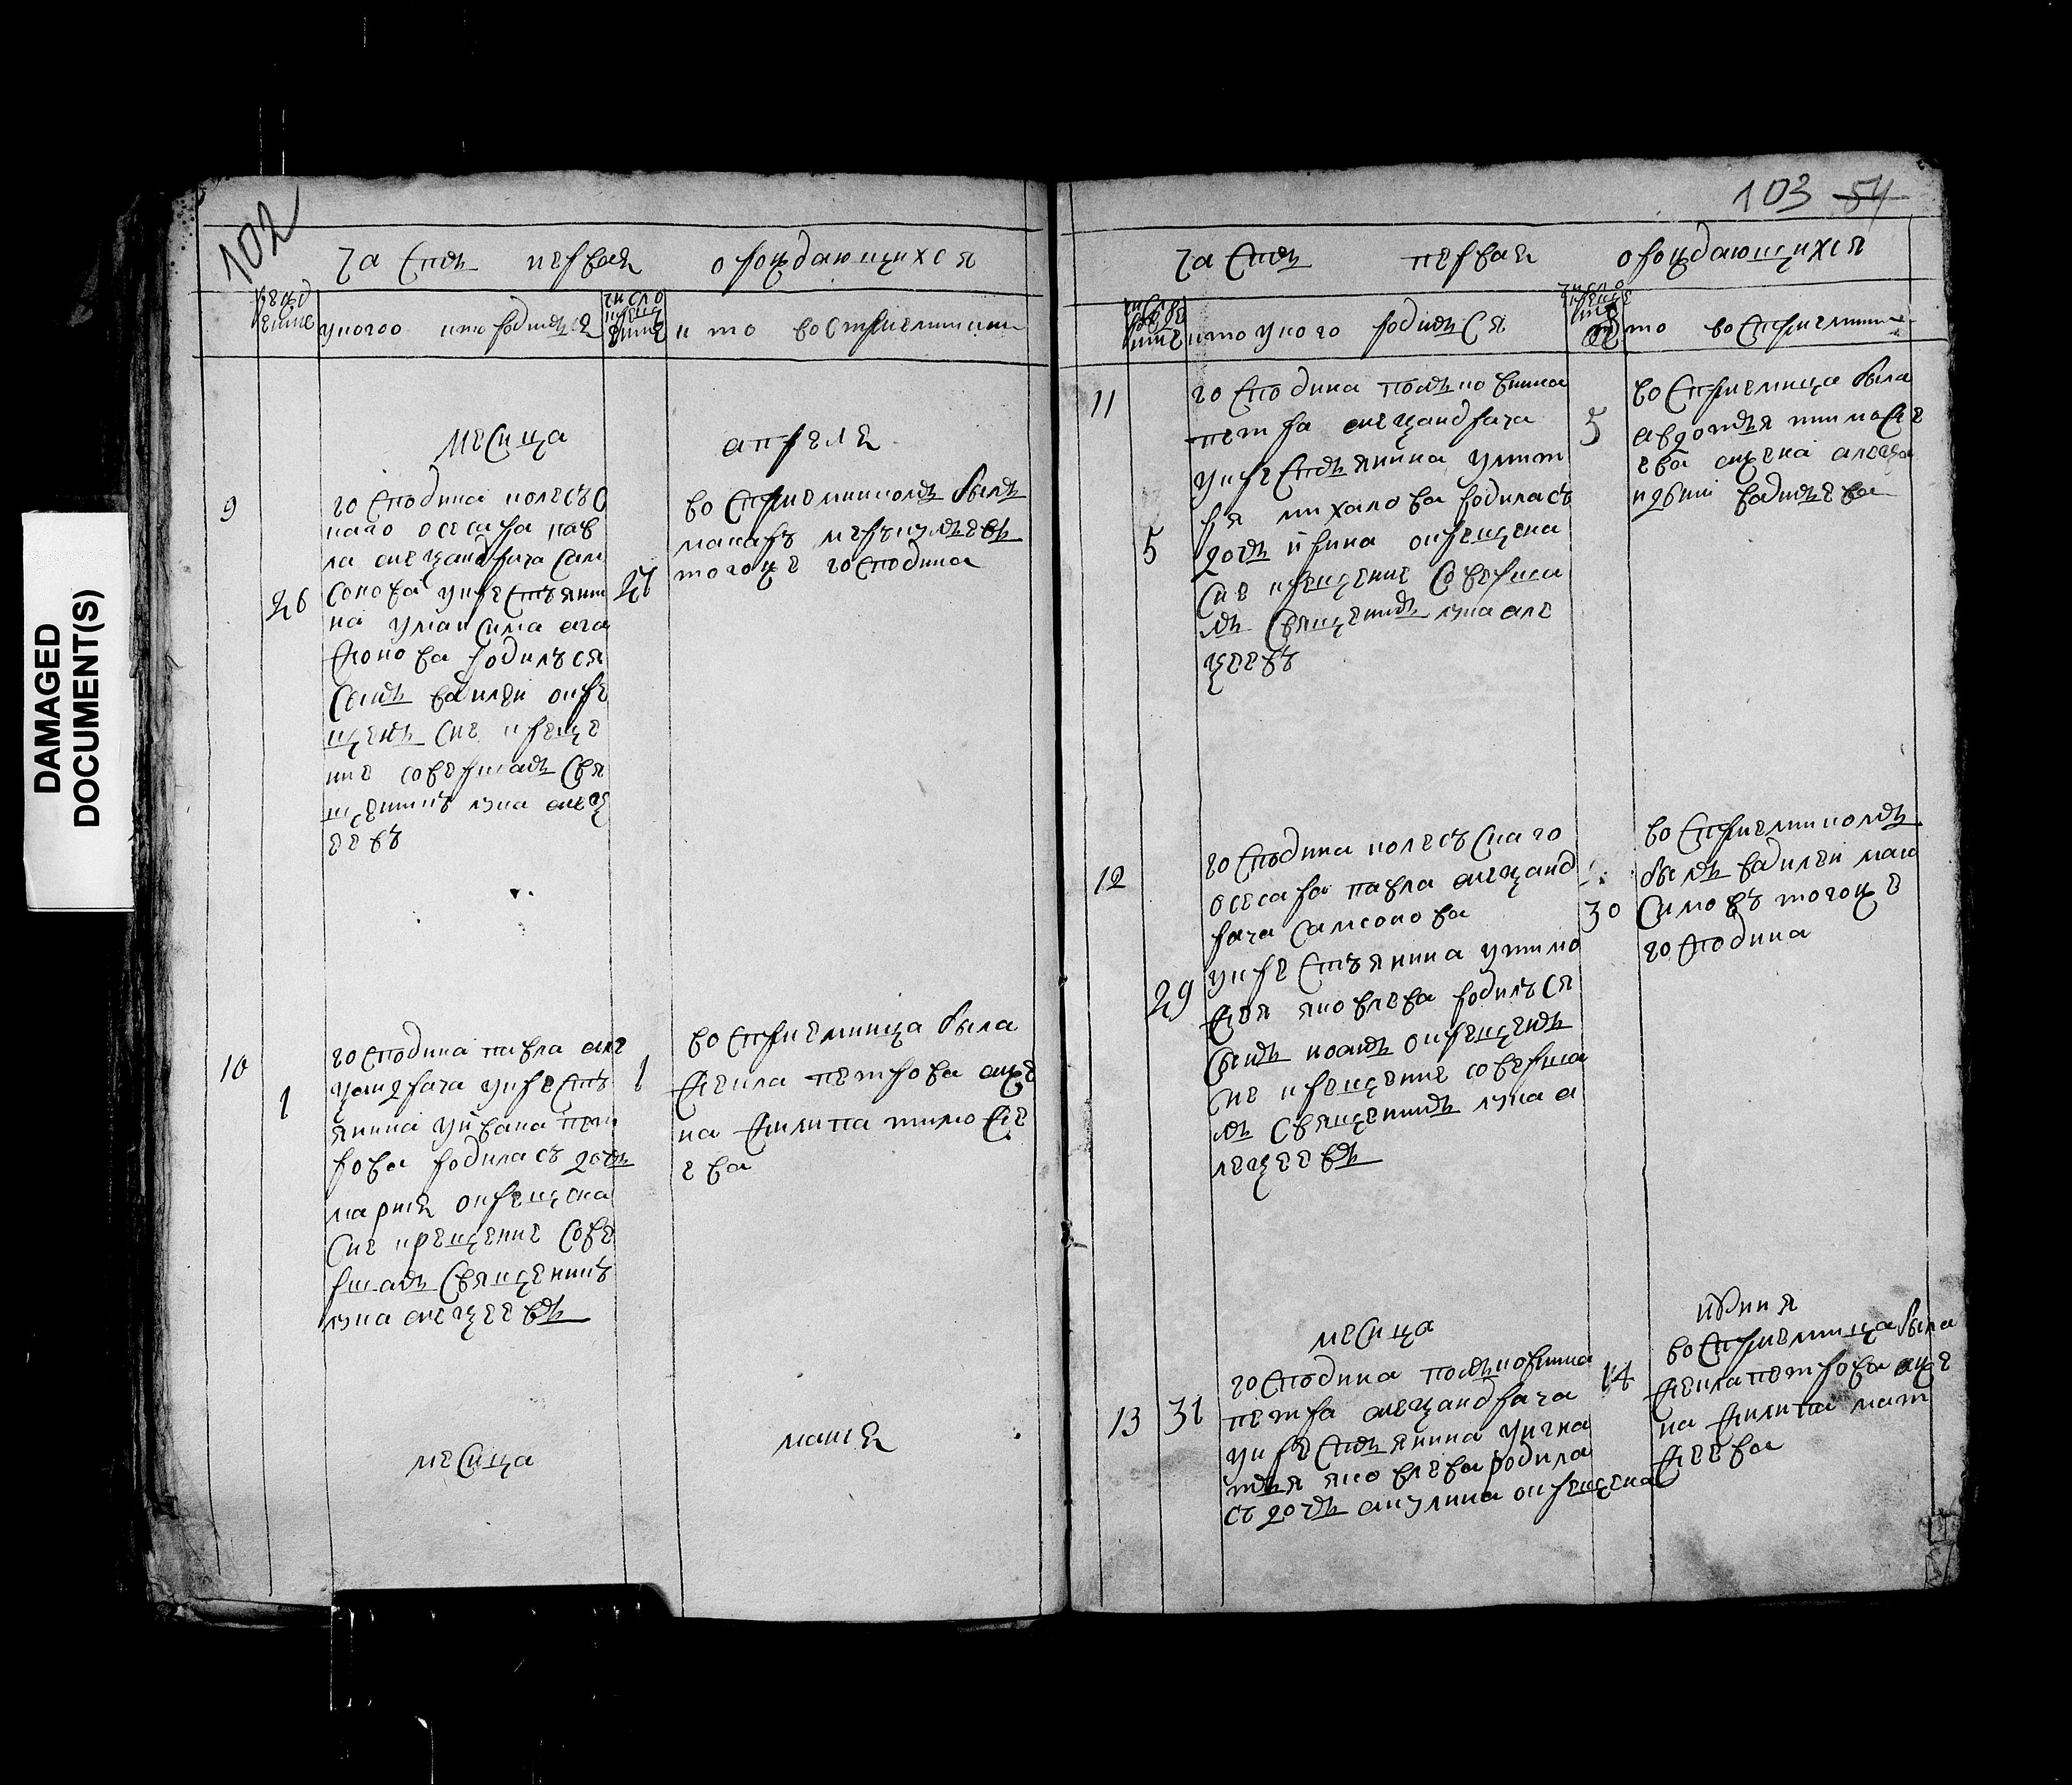 DAMAGED
DOCUMENT(S)
102
часть первая о рождающихся
рожд
ение
у кого кто родился
число
крещ
ения
кто восприемники
месица апреля
9
26
господина колесъс
каго осесара пав
ла алеѯандрача сам
сонова у крестьяни
на у максима ага
фонова родилъся
сынъ василеи окре
щенъ сие креще
ние совершалъ свя
щенникъ лука алеѯ
еевъ
27
восприемникомъ былъ
макаръ
тогоже господина
10
1
господина павла але
ѯандрача у кресть
янина у ивана пет
рова родиласъ дочь
мария окрещена
сие крещение сове
ршалъ священникъ
лука алеѯеевъ
1
восприемница была
фекла петрова аже
на филипа тимофе
ева
месица маия
103 54
часть первая о рождающихся
число
рожде
ние
кто у кого родился
число
креще
ние
кто восприемники
11
5
господина полковника
петра алеѯандрача
у крестьянина у мит
ря михалова родиласъ
дочь ирина окрещена
сие крещение соверша
лъ священникъ лука але
ѯеевъ
5
восприемница была
авдотья тимофе
ева ажена алеѯа
васильева
12
29
господина колесъскаго
осесара павла алеѯанд
рача самсонова
у крестъянина у тимо
фея яковлева родилъся
сынъ иоанъ окрещенъ
сие крещение соверша
лъ священникъ лука а
леѯеевъ
30
восприемникомъ
былъ василеи мак
симовъ тогоже
господина
месица июния
13
31
господина полковника
петра алеѯандрача
у крестьянина у игна
тья яковлева родила
съ дочь акулина окрещена
14
восприемница была
фекла петрова аже
на филипа мат
феева